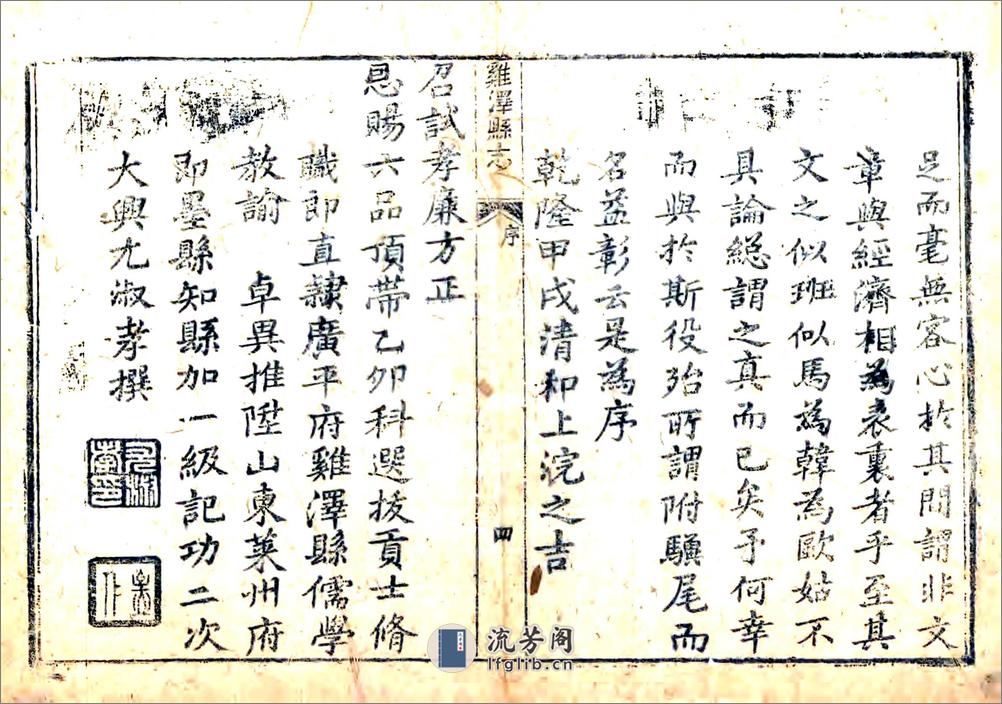 足而毫無客心於其間謂非文
章與經濟相為表裏者乎至其
文之似班似馬為韓為歐姑不
具論総謂之真而已矣予何幸
而與於斯役殆所謂附驥尾而
名益彰云是為序
乾隆甲戌清和上浣之吉
雞澤縣志
序
四
召試孝廉方正
恩賜六品頂帶乙卯科選拔貢士脩
職即直隷廣平府雞澤縣儒學
教諭 卓異推陞山東萊州府
即墨縣知縣加一級記功二次
大興尤淑孝撰
尤淑孝印
流芳阁
lfglib.cn